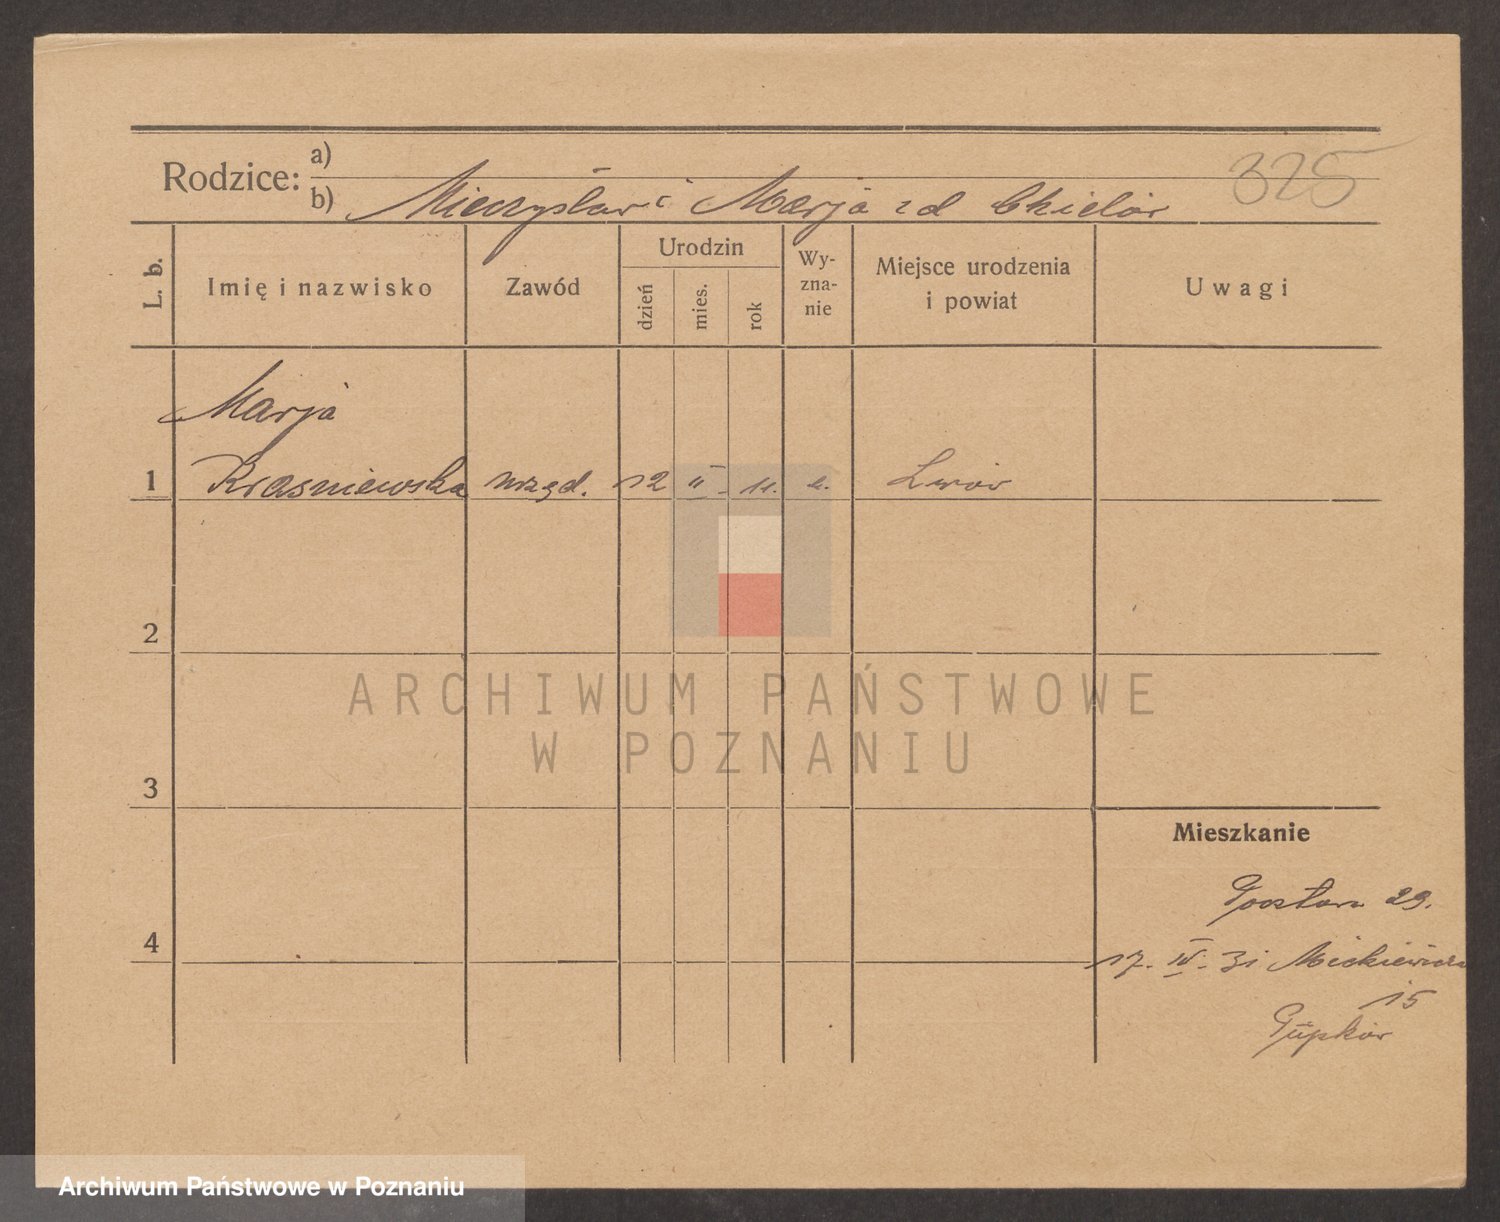 325
Rodzice:
a)
b) Mieczysław i Marja z d
L. b.
Imię i nazwisko
Zawód
Urodzin
dzień
mies.
rok
Wy-
zna-
nie
Miejsce urodzenia
i powiat
Uwagi
Marja
1 Krasniewska urzęd. 12 II 11. Lwów
2
3
4
Mieszkanie
29.
17. IV. 31 Mickiewicza
15
ARCHIWUM PAŃSTWOWE
W POZNANIU
Archiwum Państwowe w Poznaniu